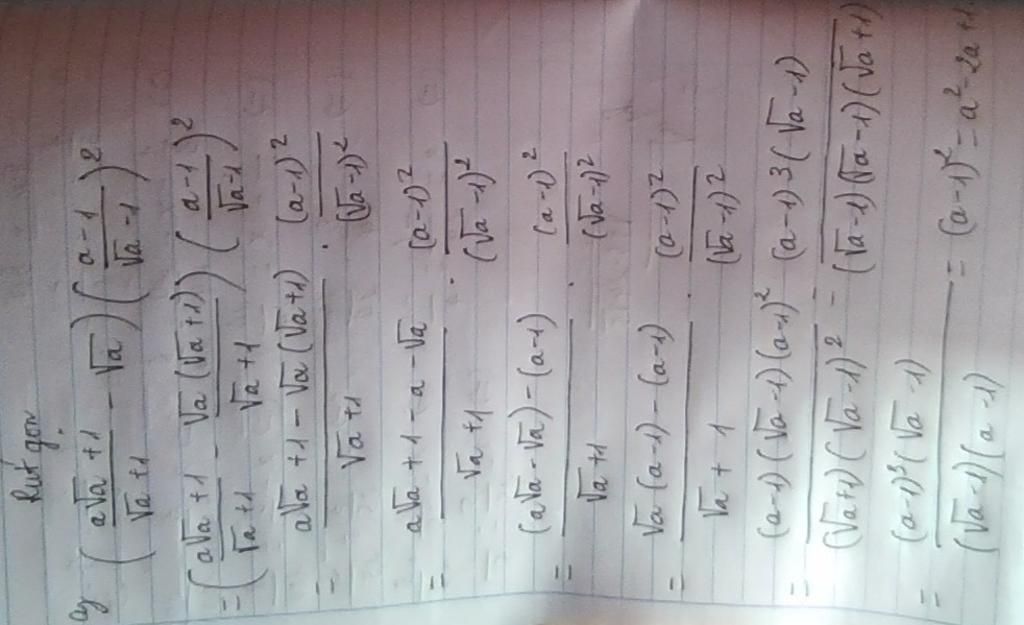 Rút gọn
a) ( (a√a + 1)/(√a + 1) - √a ) ( (a - 1)/(√a - 1) )²
= ( (a√a + 1)/(√a + 1) - (√a (√a + 1))/(√a + 1) ) ( (a - 1)/(√a - 1) )²
= (a√a + 1 - √a (√a + 1))/(√a + 1) . (a - 1)²/(√a - 1)²
= (a√a + 1 - a - √a)/(√a + 1) . (a - 1)²/(√a - 1)²
= ((a√a - √a) - (a - 1))/(√a + 1) . (a - 1)²/(√a - 1)²
= (√a (a - 1) - (a - 1))/(√a + 1) . (a - 1)²/(√a - 1)²
= ((a - 1)(√a - 1)(a - 1)²)/((√a + 1)(√a - 1)²) = ((a - 1)3(√a - 1))/((√a - 1)(√a - 1)(√a + 1))
= ((a - 1)³(√a - 1))/((√a - 1)(a - 1)) = (a - 1)² = a² - 2a + 1